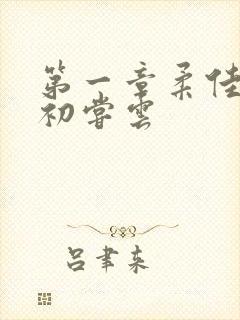 第一章柔佳
初尝云
吕聿来